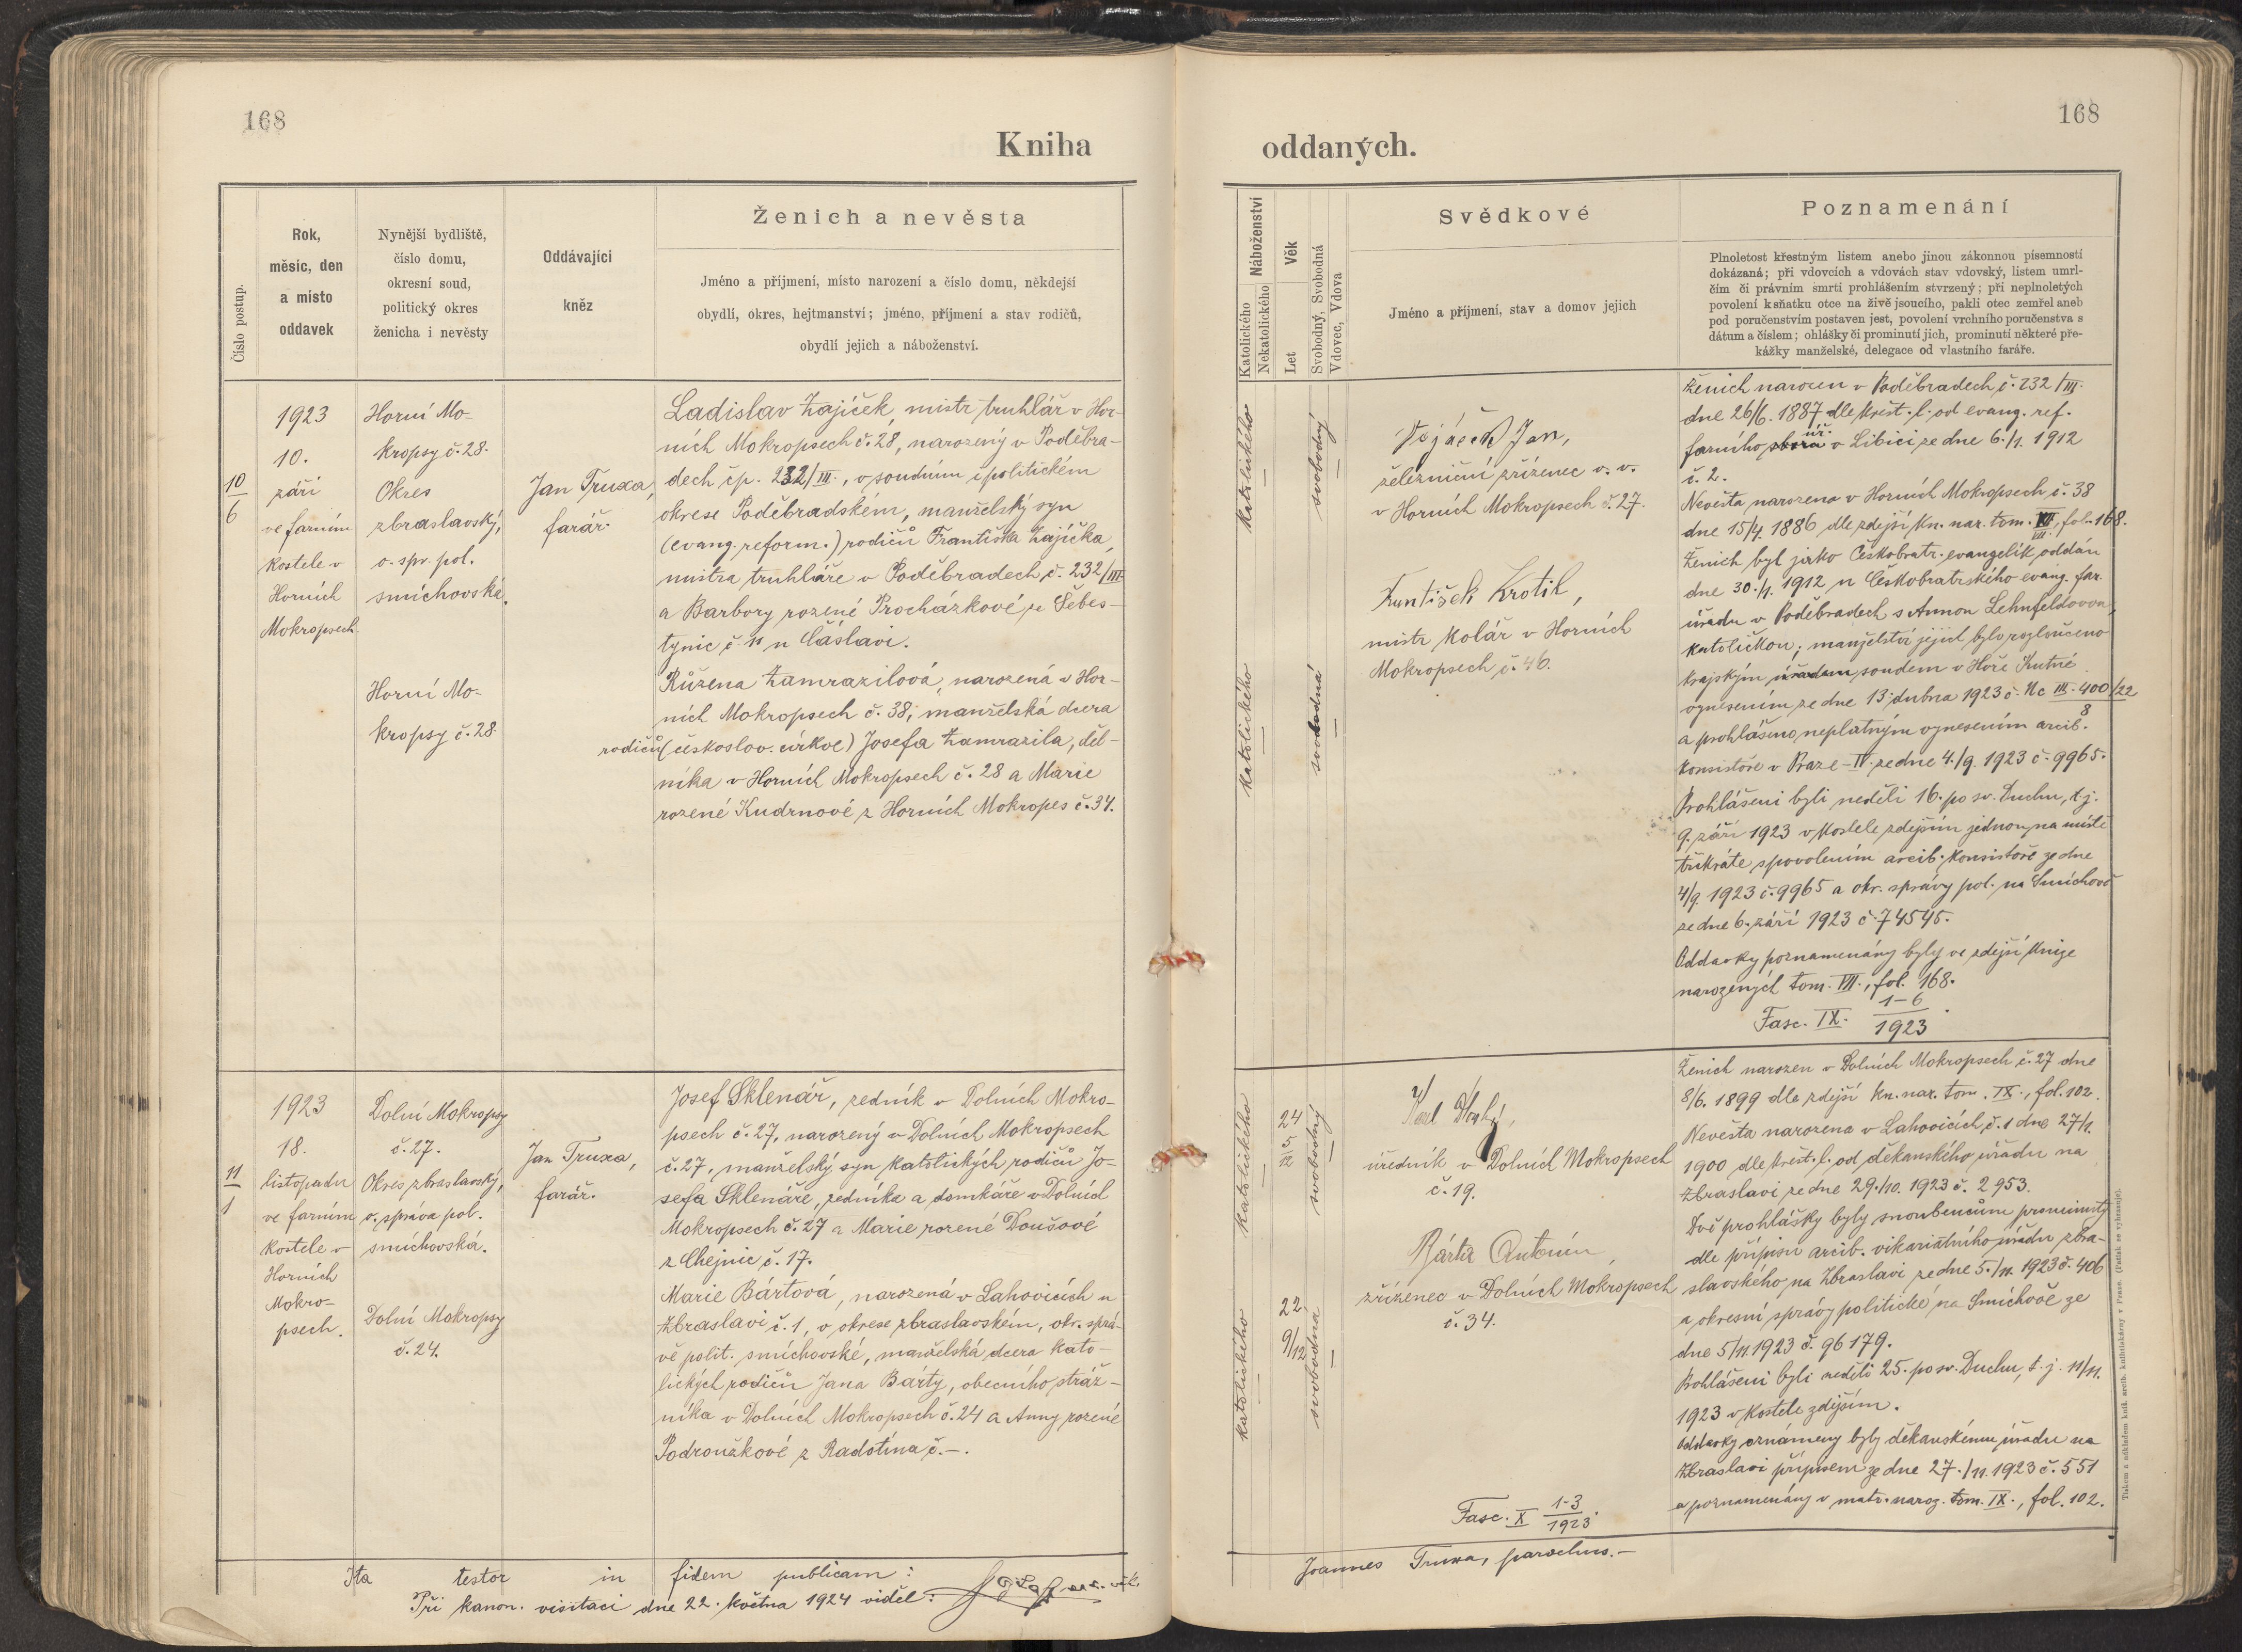 168
Kniha
Číslo postup.
Rok,
měsíc, den
a místo
oddavek
Nynější bydliště,
číslo domu,
okresní soud,
politický okres
ženicha i nevěsty
Oddávající
kněz
Ženich a nevěsta
Jméno a příjmení, místo narození a číslo domu, někdejší
obydlí, okres, hejtmanství; jméno, příjmení a stav rodičů,
obydlí jejich a náboženství.
10
6
1923
10.
září
ve farním
kostele v
Horních
Mokropsech.
Horní Mo-
kropsy č. 28.
Okres
zbraslavský,
o. spr. pol.
smíchovská.
Horní Mo-
kropsy č. 28.
Jan Truxa,
farář.
Ladislav Zajíček, mistr truhlář v Hor-
ních Mokropsech č. 28, narozený v Poděbra-
dech čp. 232/III., v soudním i politickém
okrese Poděbradském, manželský syn
(evang. reform.) rodičů Františka Zajíčka,
mistra truhláře v Poděbradech č. 232/III.
a Barbory rozené Procházkové ze Šebes-
tynic č. 11 u Čáslavi.
Růžena Zamrazilová, narozená v Hor-
ních Mokropsech č. 38, manželská dcera
rodičů (českoslov. církve) Josefa Zamrazila, děl-
níka v Horních Mokropsech č. 28 a Marie
rozené Kudrnové z Horních Mokropes č. 34.
11
1
1923
18.
listopadu
ve farním
kostele v
Horních
Mokro-
psech.
Dolní Mokropsy
č. 27.
Okres zbraslavský,
o. správa pol.
smíchovská.
Dolní Mokropsy
č. 24.
Jan Truxa,
farář.
Josef Sklenář, zedník v Dolních Mokro-
psech č. 27, narozený v Dolních Mokropsech
č. 27, manželský syn katolických rodičů Jo-
sefa Sklenáře, zedníka a domkáře v Dolních
Mokropsech č. 27 a Marie rozené Doušové
z Chejnic č. 17.
Marie Bártová, narozená v Lahovicích u
Zbraslavi č. 1, v okrese zbraslavském, okr. sprá-
vě polit. smíchovské, manželská dcera kato-
lických rodičů Jana Bárty, obecního stráž-
níka v Dolních Mokropsech č. 24 a Anny rozené
Podroužkové z Radotína č. –.
Ita testor in fidem publicam:
Při kanon. visitaci dne 22. května 1924 viděl:
168
oddaných.
Katolického
Nekatolického
Náboženství
Let
Věk
Svobodný, Svobodná
Vdovec, Vdova
Svědkové
Jméno a příjmení, stav a domov jejich
Poznamenání
Plnoletost křestným listem anebo jinou zákonnou písemností
dokázaná; při vdovcích a vdovách stav vdovský, listem umrl-
čím či právním smrti prohlášením stvrzený; při neplnoletých
povolení k sňatku otce na živě jsoucího, pakli otec zemřel aneb
pod poručenstvím postaven jest, povolení vrchního poručenstva s
dátum a číslem; ohlášky či prominutí jich, prominutí některé pře-
kážky manželské, delegace od vlastního faráře.
katolického
svobodný
katolického
svobodná
Vojáček Jan,
železniční zřízenec v. v.
v Horních Mokropsech č. 27.
František Krotil,
mistr kolář v Horních
Mokropsech č. 46.
Ženich narozen v Poděbradech č. 232/III.
dne 26/6. 1887 dle křest. l. od evang. ref.
farního sboru úř. v Libici ze dne 6./1. 1912
č. 2.
Nevěsta narozena v Horních Mokropsech č. 38
dne 15/4. 1886 dle zdejší kn. nar. tom. VIII., fol. 168.
Ženich byl jako Českobratr. evangelík oddán
dne 30./1. 1912 u Českobratrského evang. far.
úřadu v Poděbradech s Annou Lehnfeldovou,
katoličkou; manželství jejich bylo rozloučeno
krajským úřadem soudem v Hoře Kutné
vynesením ze dne 13. dubna 1923 č. Nc III. 400/22
8
a prohlášeno neplatným vynesením arcib.
konsistoře v Praze-IV. ze dne 4./9. 1923 č. 9965.
Prohlášeni byli neděli 16. po sv. Duchu, t. j.
9. září 1923 v kostele zdejším jednou na místě
třikráte s povolením arcib. konsistoře ze dne
4/9. 1923 č. 9965 a okr. správy pol. na Smíchově
ze dne 6. září 1923 č. 74545.
Oddavky poznamenány byly ve zdejší knize
narozených tom. VIII., fol. 168.
Fasc. IX. 1–6/1923.
katolického
24
5/12
svobodný
katolického
22
9/12
svobodná
úředník v Dolních Mokropsech
č. 19.
Bárta Antonín,
zřízenec v Dolních Mokropsech
č. 34.
Fasc. X 1-3/1923.
Ženich narozen v Dolních Mokropsech č. 27 dne
8/6. 1899 dle zdejší kn. nar. tom. IX., fol. 102.
Nevěsta narozena v Lahovicích č. 1 dne 27/1.
1900 dle křest. l. od děkanského úřadu na
Zbraslavi ze dne 29./10. 1923 č. 2953.
Dvě prohlášky byly snoubencům prominuty
dle přípisu arcib. vikariátního úřadu zbra-
slavského na Zbraslavi ze dne 5./11. 1923 č. 406
a okresní správy politické na Smíchově ze
dne 5/11 1923 č. 96179.
Prohlášeni byli neděli 25. po sv. Duchu, t. j. 11/11.
1923 v kostele zdejším.
Oddavky oznámeny byly děkanskému úřadu na
Zbraslavi přípisem ze dne 27./11. 1923 č. 551
a poznamenány v matr. naroz. tom. IX., fol. 102.
Joannes Truxa, parochus.–
Tiskem a nákladem kníž. arcib. knihtiskárny v Praze. (Patisk se vyhrazuje).